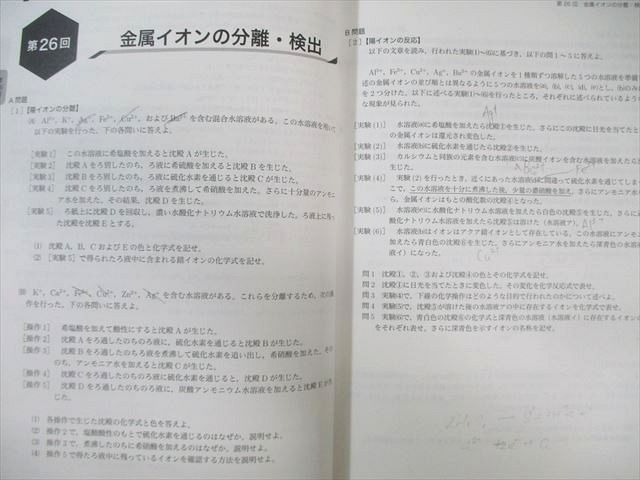 第26回
金属イオンの分離・検出
A 問題
［1］【陽イオンの分離】
Al³⁺, K⁺, Ag⁺, Fe³⁺, Cu²⁺, および を含む混合水溶液がある。この水溶液を用いて
以下の実験を行った。下の各問いに答えよ。
［実験1］ この水溶液に希塩酸を加えると沈殿 A が生じた。
［実験2］ 沈殿 A をろ別したのち、ろ液に希硫酸を加えると沈殿 B を生じた。
［実験3］ 沈殿 B をろ別したのち、ろ液に硫化水素を通じると沈殿 C が生じた。
［実験4］ 沈殿 C をろ別したのち、ろ液を煮沸して希硝酸を加えた。さらに十分量のアンモニ
ア水を加えた。その結果、沈殿 D を生じた。
［実験5］ ろ紙上に沈殿 D を回収し、濃い水酸化ナトリウム水溶液で洗浄した。ろ紙上に残っ
た沈殿を沈殿 E とする。
(1) 沈殿 A, B, C および E の色と化学式を記せ。
(2) ［実験5］で得られたろ液中に含まれる錯イオンの化学式を記せ。
K⁺, Ca²⁺, Fe³⁺, Cu²⁺, Zn²⁺, Ag⁺ を含む水溶液がある。これらを分離するため、次の操
作を行った。下の各問いに答えよ。
［操作1］ 希塩酸を加えて酸性にすると沈殿 A が生じた。
［操作2］ 沈殿 A をろ過したのちのろ液に、硫化水素を通じると沈殿 B が生じた。
［操作3］ 沈殿 B をろ過したのちのろ液を煮沸して硫化水素を追い出し、希硝酸を加えた。その
のち、アンモニア水を加えると沈殿 C が生じた。
［操作4］ 沈殿 C をろ過したのちのろ液に硫化水素を通じると、沈殿 D が生じた。
［操作5］ 沈殿 D をろ過したのちのろ液に、炭酸アンモニウム水溶液を加えると沈殿 E が生
じた。
(1) 各操作で生じた沈殿の化学式と色を答えよ。
(2) 操作2で、塩酸酸性のもとで硫化水素を通じるのはなぜか。説明せよ。
(3) 操作3で、煮沸したのちに希硝酸を加えるのはなぜか。説明せよ。
(4) 操作5で得たろ液中に残っているイオンを確認する方法を説明せよ。
第26回 金属イオンの分離・検
B 問題
［2］【陽イオンの反応】
以下の文章を読み、行われた実験(1)～(6)に基づき、以下の問1～5に答えよ。
Al³⁺, Fe³⁺, Cu²⁺, Ag⁺, Ba²⁺ の金属イオンを1種類ずつ溶解した5つの水溶液を準備
述の金属イオンの並び順とは異なるように5つの水溶液を(a), (b), (c), (d), (e)とし、(b)のみ
を2つ分けた。以下に述べる実験(1)～(6)を行ったところ、それぞれに述べられているような
な現象が見られた。
Ag⁺
［実験(1)］ 水溶液(a)に希塩酸を加えたら沈殿①を生じた。さらにこの沈殿に日光を当てたと
の金属イオンは還元され変色した。
［実験(2)］ 水溶液(b)に硫化水素を通じたら沈殿②を生じた。
［実験(3)］ カルシウムと同族の元素を含む水溶液(c)に炭酸イオンを含む水溶液を加えたら
生じた。
［実験(4)］ 実験(2)を行ったとき、近くにあった水溶液(d)に間違って硫化水素を通じてしま
こで、この水溶液を十分に煮沸した後、少量の希硝酸を加え、さらにアンモニア水
ら、金属イオンはもとの酸化数の沈殿④となった。
［実験(5)］ 水溶液(e)に水酸化ナトリウム水溶液を加えたら白色の沈殿⑤を生じた。さらに
酸化ナトリウム水溶液を加えたら沈殿⑤は溶けた(水溶液ア)。
［実験(6)］ 水溶液(b)はイオンはアクア錯イオンとして存在している。この水溶液にアンモニ
加えたら青白色の沈殿⑥を生じた。さらにアンモニア水を加えたら深青色の水溶
液イ)になった。
Cu²⁺
問1 沈殿①, ②, ③および沈殿④の色とその化学式を記せ。
問2 沈殿①に日光を当てたときに変色した。その変化を化学反応式で表せ。
問3 実験(4)で、下線の化学操作はどのような目的で行われたのかについて述べよ。
問4 実験(5)で、沈殿⑤が溶けた後の水溶液アの中に存在するイオンを化学式で表せ。
問5 実験(6)で、青白色の沈殿⑥の化学式と深青色の水溶液(水溶液イ)に存在するイオンの
をそれぞれ表せ。さらに深青色を示すイオンの名称を記せ。